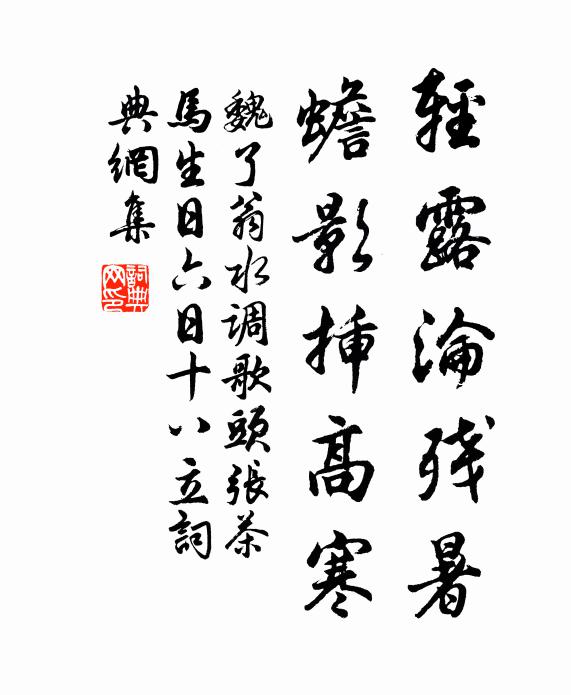 輕露淪残暑
蟾影插高寒
魏了翁水調歌頭張茶
馬生日六日十八立詞
典網集
詞典網印